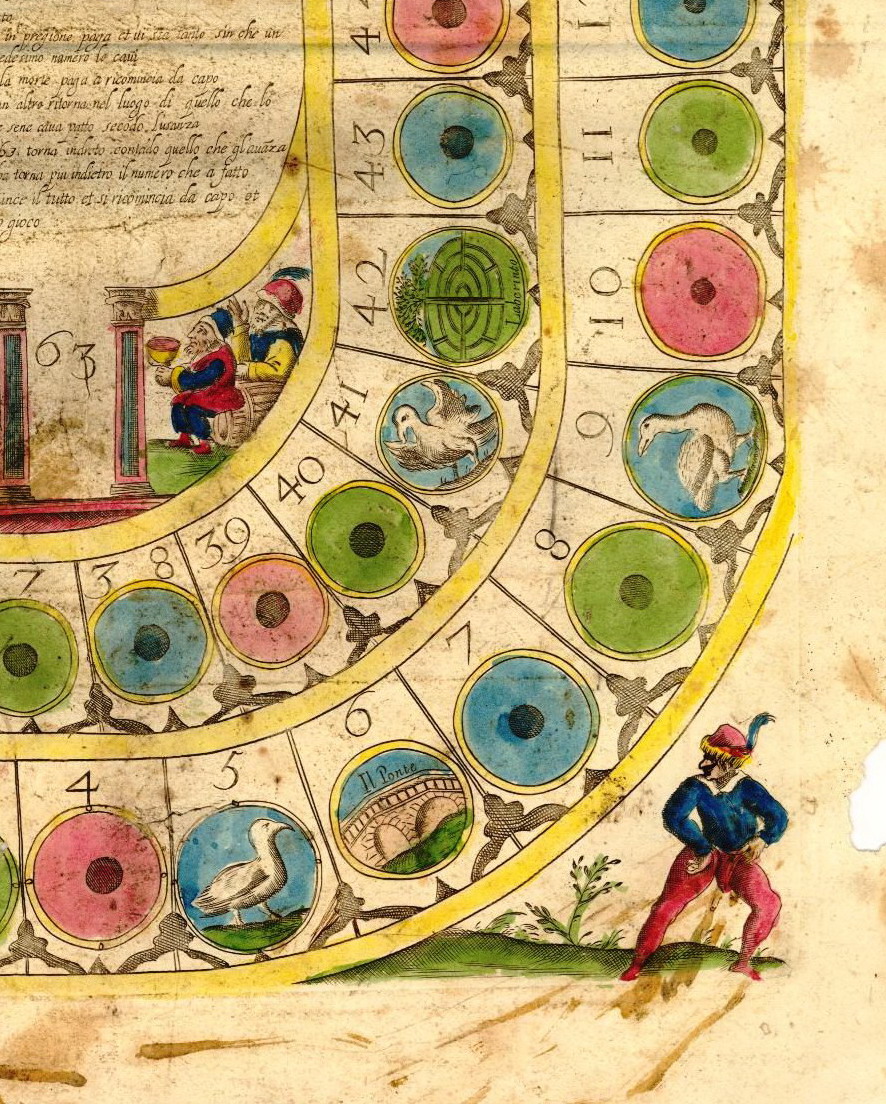 in pregione paga et ui sta tanto sin che un
edesimo numero lo caui
la morte paga a ricomincia da capo
un altro ritorna nel luogo di quello che lo
63. torna indieto contado quello che gl auāza
torna piu indietro il numero che a fatto
ince il tutto et si ricomincia da capo et
gioco
63
43
42
Laborinto
41
40
39
38
7
11
10
9
8
7
6
Il Ponte
5
4